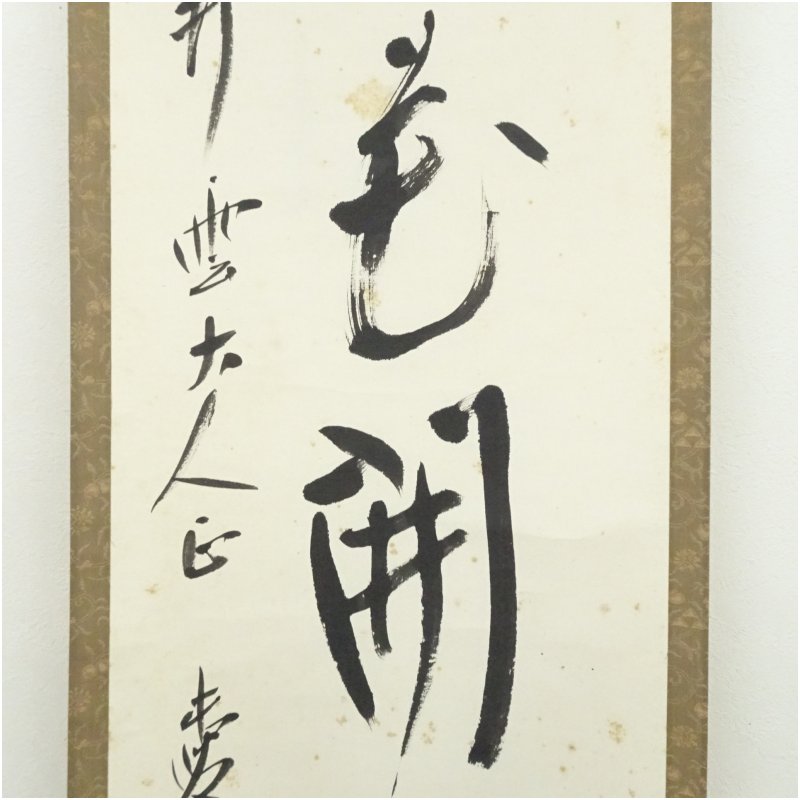 花開
雲大人正